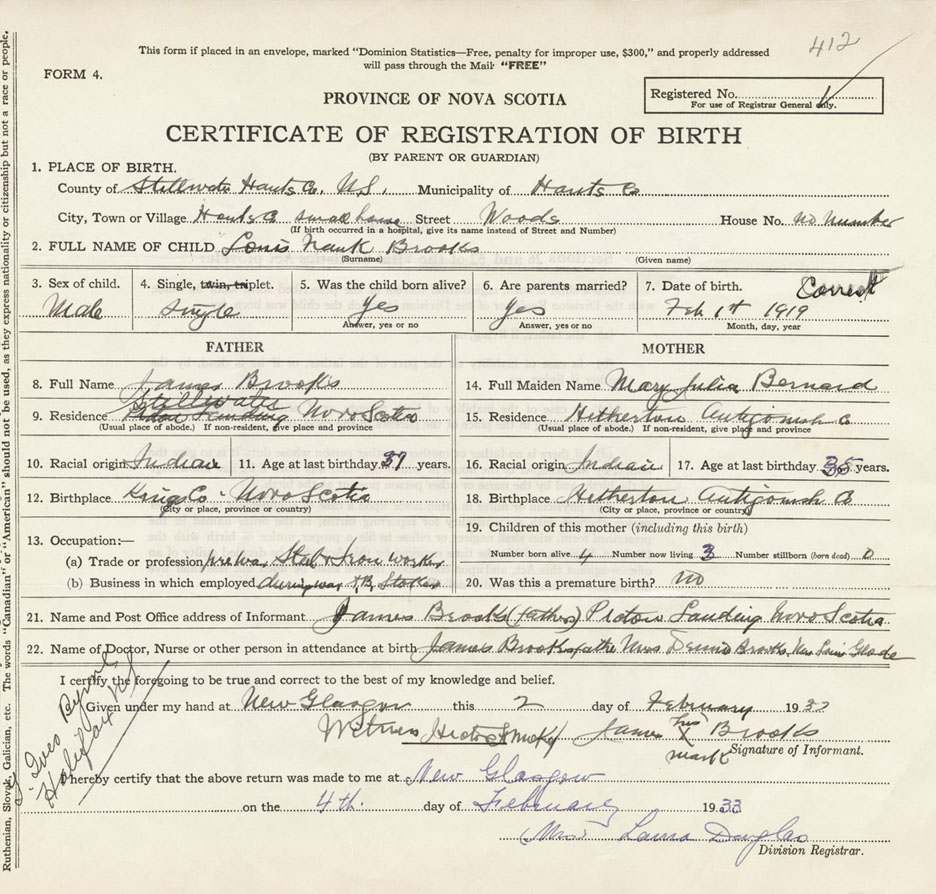 412
This form if placed in an envelope, marked "Dominion Statistics—Free, penalty for improper use, $300," and properly addressed
will pass through the Mail "FREE"
FORM 4.
Registered No.
For use of Registrar General only.
PROVINCE OF NOVA SCOTIA
CERTIFICATE OF REGISTRATION OF BIRTH
(BY PARENT OR GUARDIAN)
1. PLACE OF BIRTH.
County of Stillwater Hants Co. N.S. Municipality of Hants Co
City, Town or Village Hants Co small house Street Woods House No. no number
(If birth occurred in a hospital, give its name instead of Street and Number)
2. FULL NAME OF CHILD Louis Brooks
(Surname) (Given name)
3. Sex of child. 4. Single, twin, triplet. 5. Was the child born alive? 6. Are parents married? 7. Date of birth. Correct
Male Single Yes Yes Feb 1st 1919
Answer, yes or no Answer, yes or no Month, day, year
FATHER MOTHER
8. Full Name James Brooks 14. Full Maiden Name Mary Julia Bernard
Stillwater
9. Residence Landing Nova Scotia 15. Residence Hetherton Antigonish Co
(Usual place of abode.) If non-resident, give place and province (Usual place of abode.) If non-resident, give place and province
10. Racial origin Indian 11. Age at last birthday 37 years. 16. Racial origin Indian 17. Age at last birthday 35 years.
12. Birthplace Kings Co. Nova Scotia 18. Birthplace Hetherton Antigonish Co
(City or place, province or country) (City or place, province or country)
19. Children of this mother (including this birth)
13. Occupation:—
(a) Trade or profession prewar Steel & Iron worker Number born alive 4 Number now living 3 Number stillborn (born dead) 0
(b) Business in which employed during war Stoker 20. Was this a premature birth? no
21. Name and Post Office address of Informant James Brooks (father) Pictou Landing Nova Scotia
22. Name of Doctor, Nurse or other person in attendance at birth James Brooks father Mrs Brooks, Mrs Louis Glode
I certify the foregoing to be true and correct to the best of my knowledge and belief.
Given under my hand at New Glasgow this 2 day of February 1933
Witness James his X Brooks
mark Signature of Informant.
I hereby certify that the above return was made to me at New Glasgow
on the 4th. day of February 1933
(Mrs) Laura Douglas
Division Registrar.
Halifax N.S.
Ruthenian, Slovak, Galician, etc. The words "Canadian" or "American" should not be used, as they express nationality or citizenship but not a race or people.